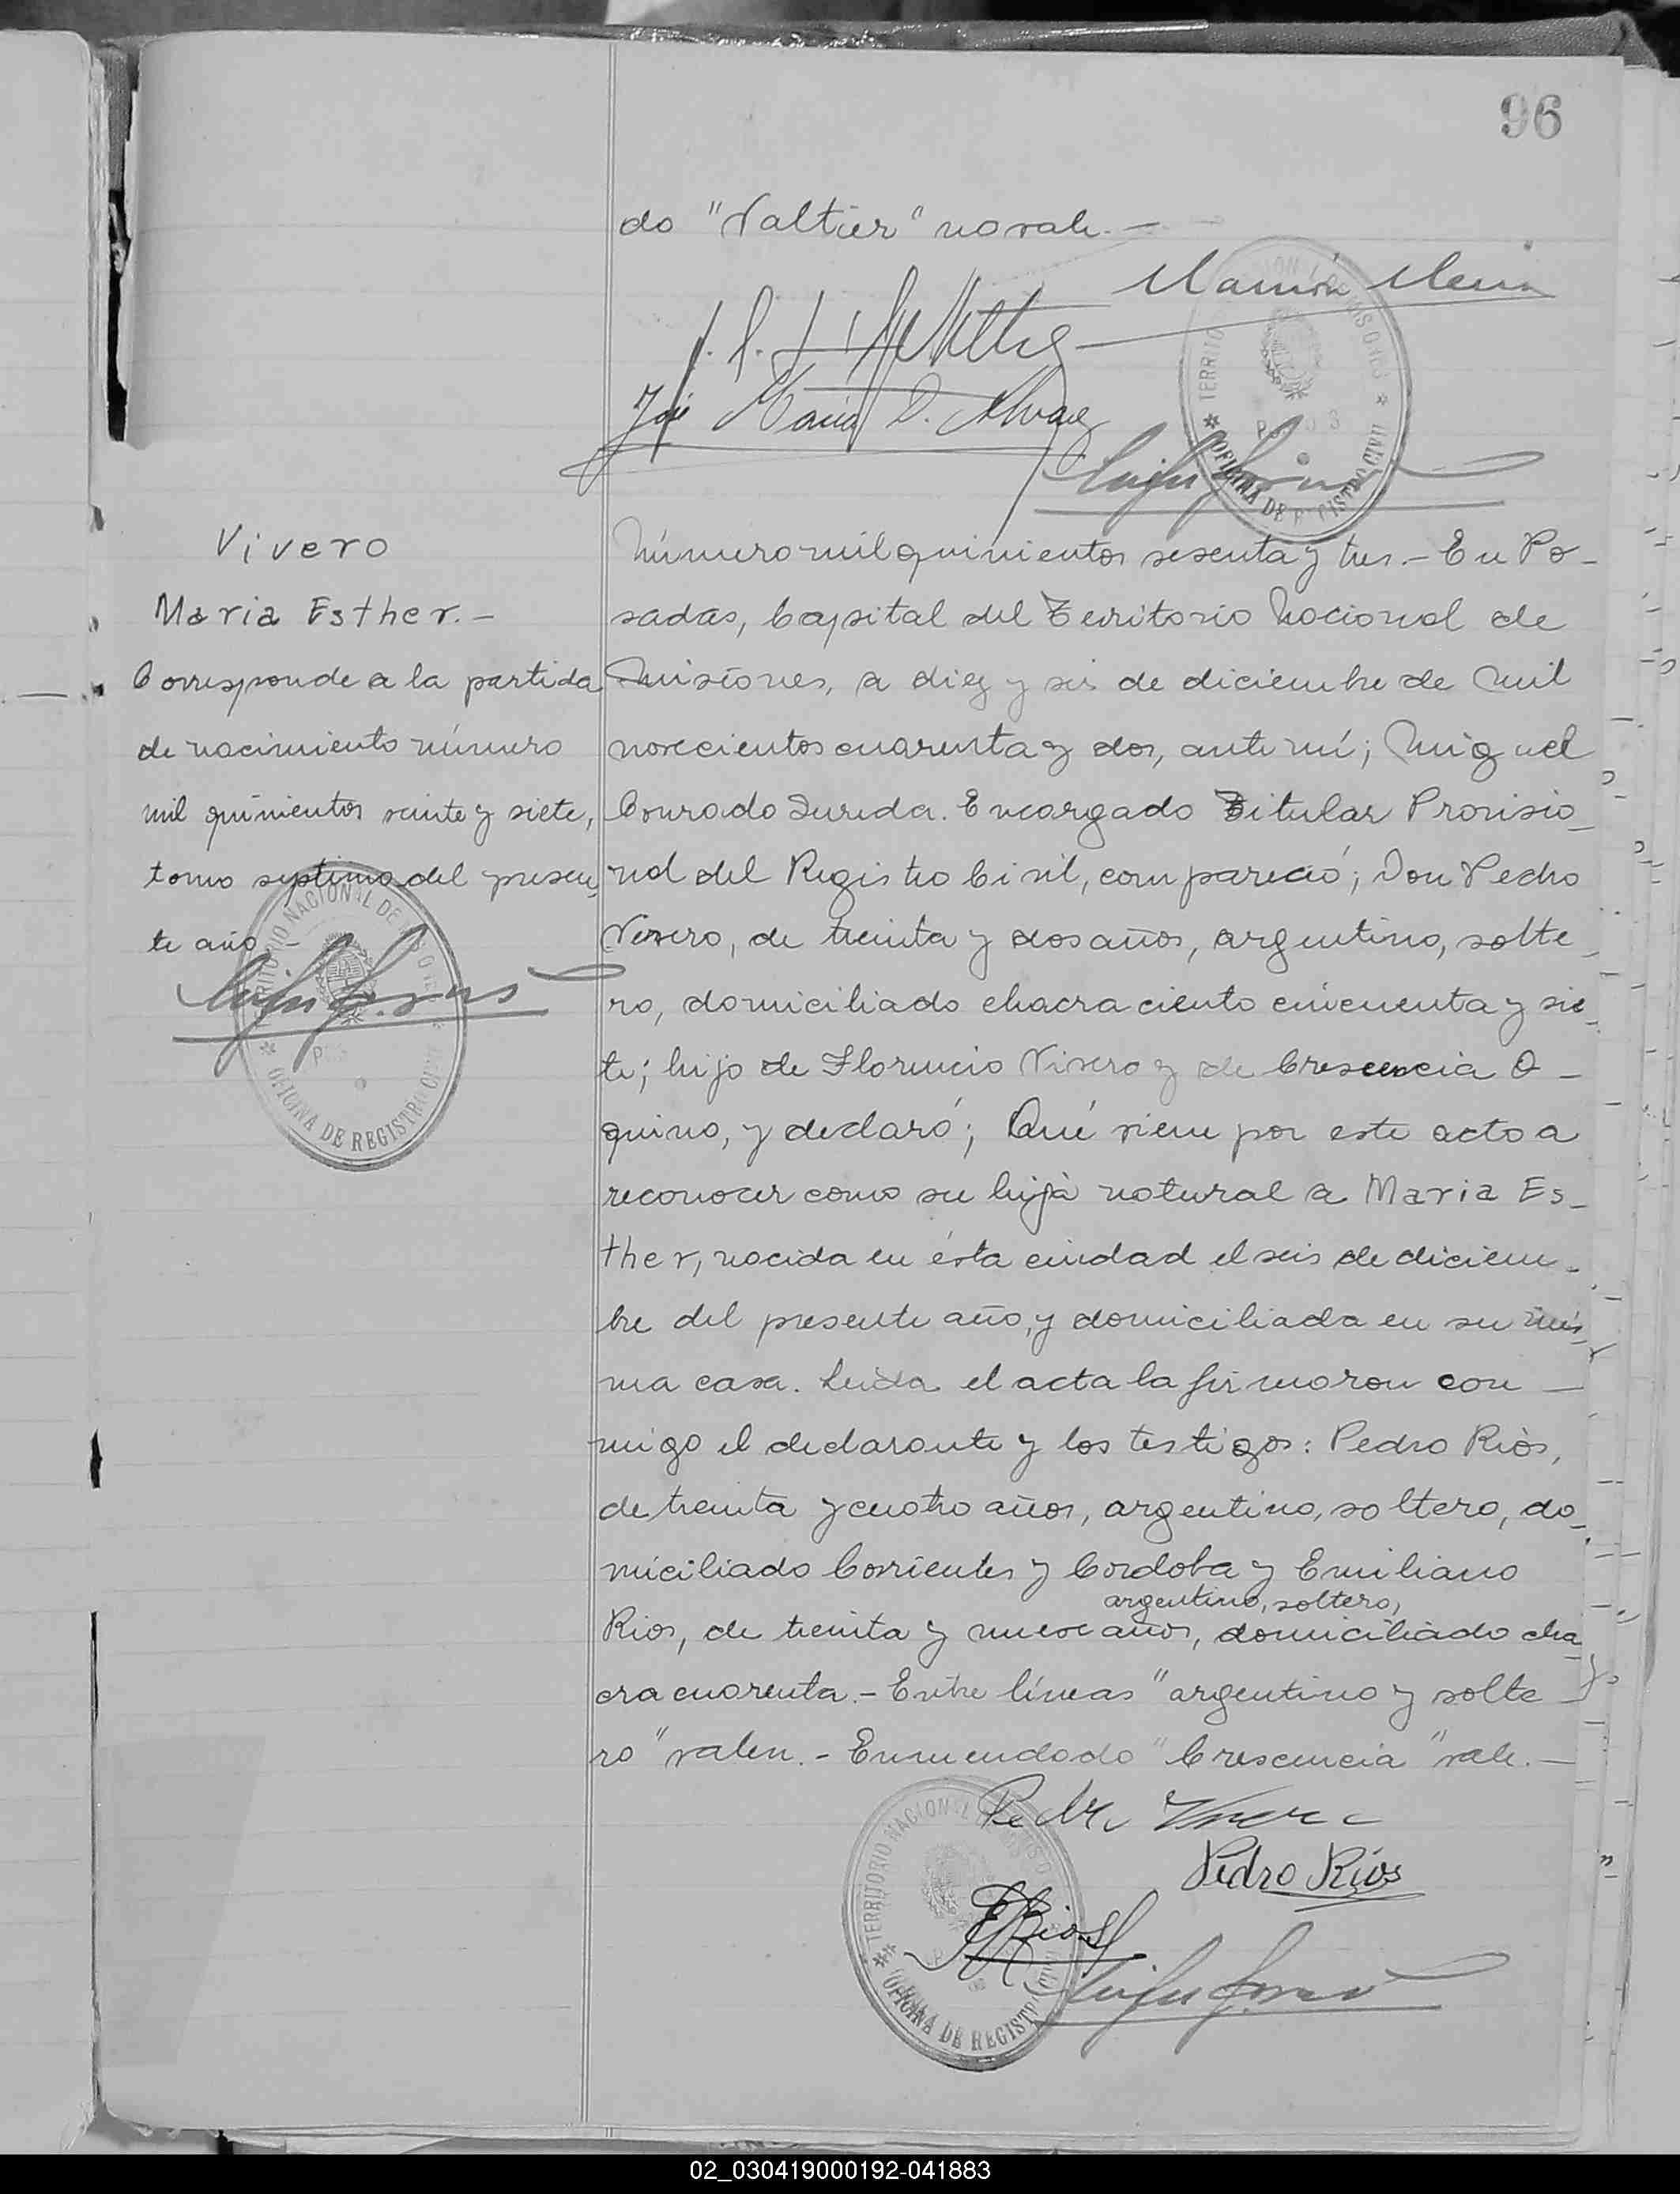 96
do "Valtier" no vale.—
Ramón
José María D. Alvarez
TERRITORIO NACIONAL DE MISIONES
OFICINA DE REGISTRO CIVIL
Vivero
Maria Esther.—
Corresponde a la partida
de nacimiento número
mil quinientos veinte y siete,
tomo septimo del presen-
te año.—
TERRITORIO NACIONAL DE MISIONES
OFICINA DE REGISTRO CIVIL
Número mil quinientos sesenta y tres.— En Po-
sadas, Capital del Territorio Nacional de
Misiones, a diez y seis de diciembre de mil
novecientos cuarenta y dos, ante mí; Miguel
Conrado Encargado Titular Provisio-
nal del Registro Civil, compareció; Don Pedro
Vivero, de treinta y dos años, argentino, solte-
ro, domiciliado chacra ciento cincuenta y sie-
te; hijo de Florencio Vivero y de Crescencia O-
quino, y declaró; Qué viene por este acto a
reconocer como su hija natural a Maria Es-
ther, nacida en ésta ciudad el seis de diciem-
bre del presente año, y domiciliada en su mis-
ma casa. Leída el acta la firmaron con—
migo el declarante y los testigos: Pedro Riós,
de treinta y cuatro años, argentino, soltero, do-
miciliado Corrientes y Cordoba y Emiliano
argentino, soltero,
Rios, de treinta y nueve años, domiciliado cha-
cra cuarenta.— Entre líneas "argentino y solte-
ro" valen.— Enmendado "Crescencia" vale.—
Pedro Vivero
Pedro Ríos
E Rios
TERRITORIO NACIONAL DE MISIONES
OFICINA DE REGISTRO CIVIL
02_030419000192-041883